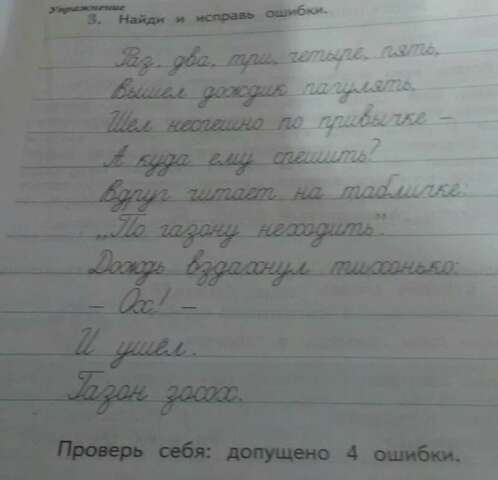 Упражнение
3. Найди и исправь ошибки.
Раз, два, три, четыре, пять,
Вышел дождик пагулять.
Шел неспешно по привычке –
А куда ему спешить?
Вдруг читает на табличке:
„По газону неходить".
Дождь вздахнул тихонько:
– Ох! –
И ушел.
Газон засох.
Проверь себя: допущено 4 ошибки.